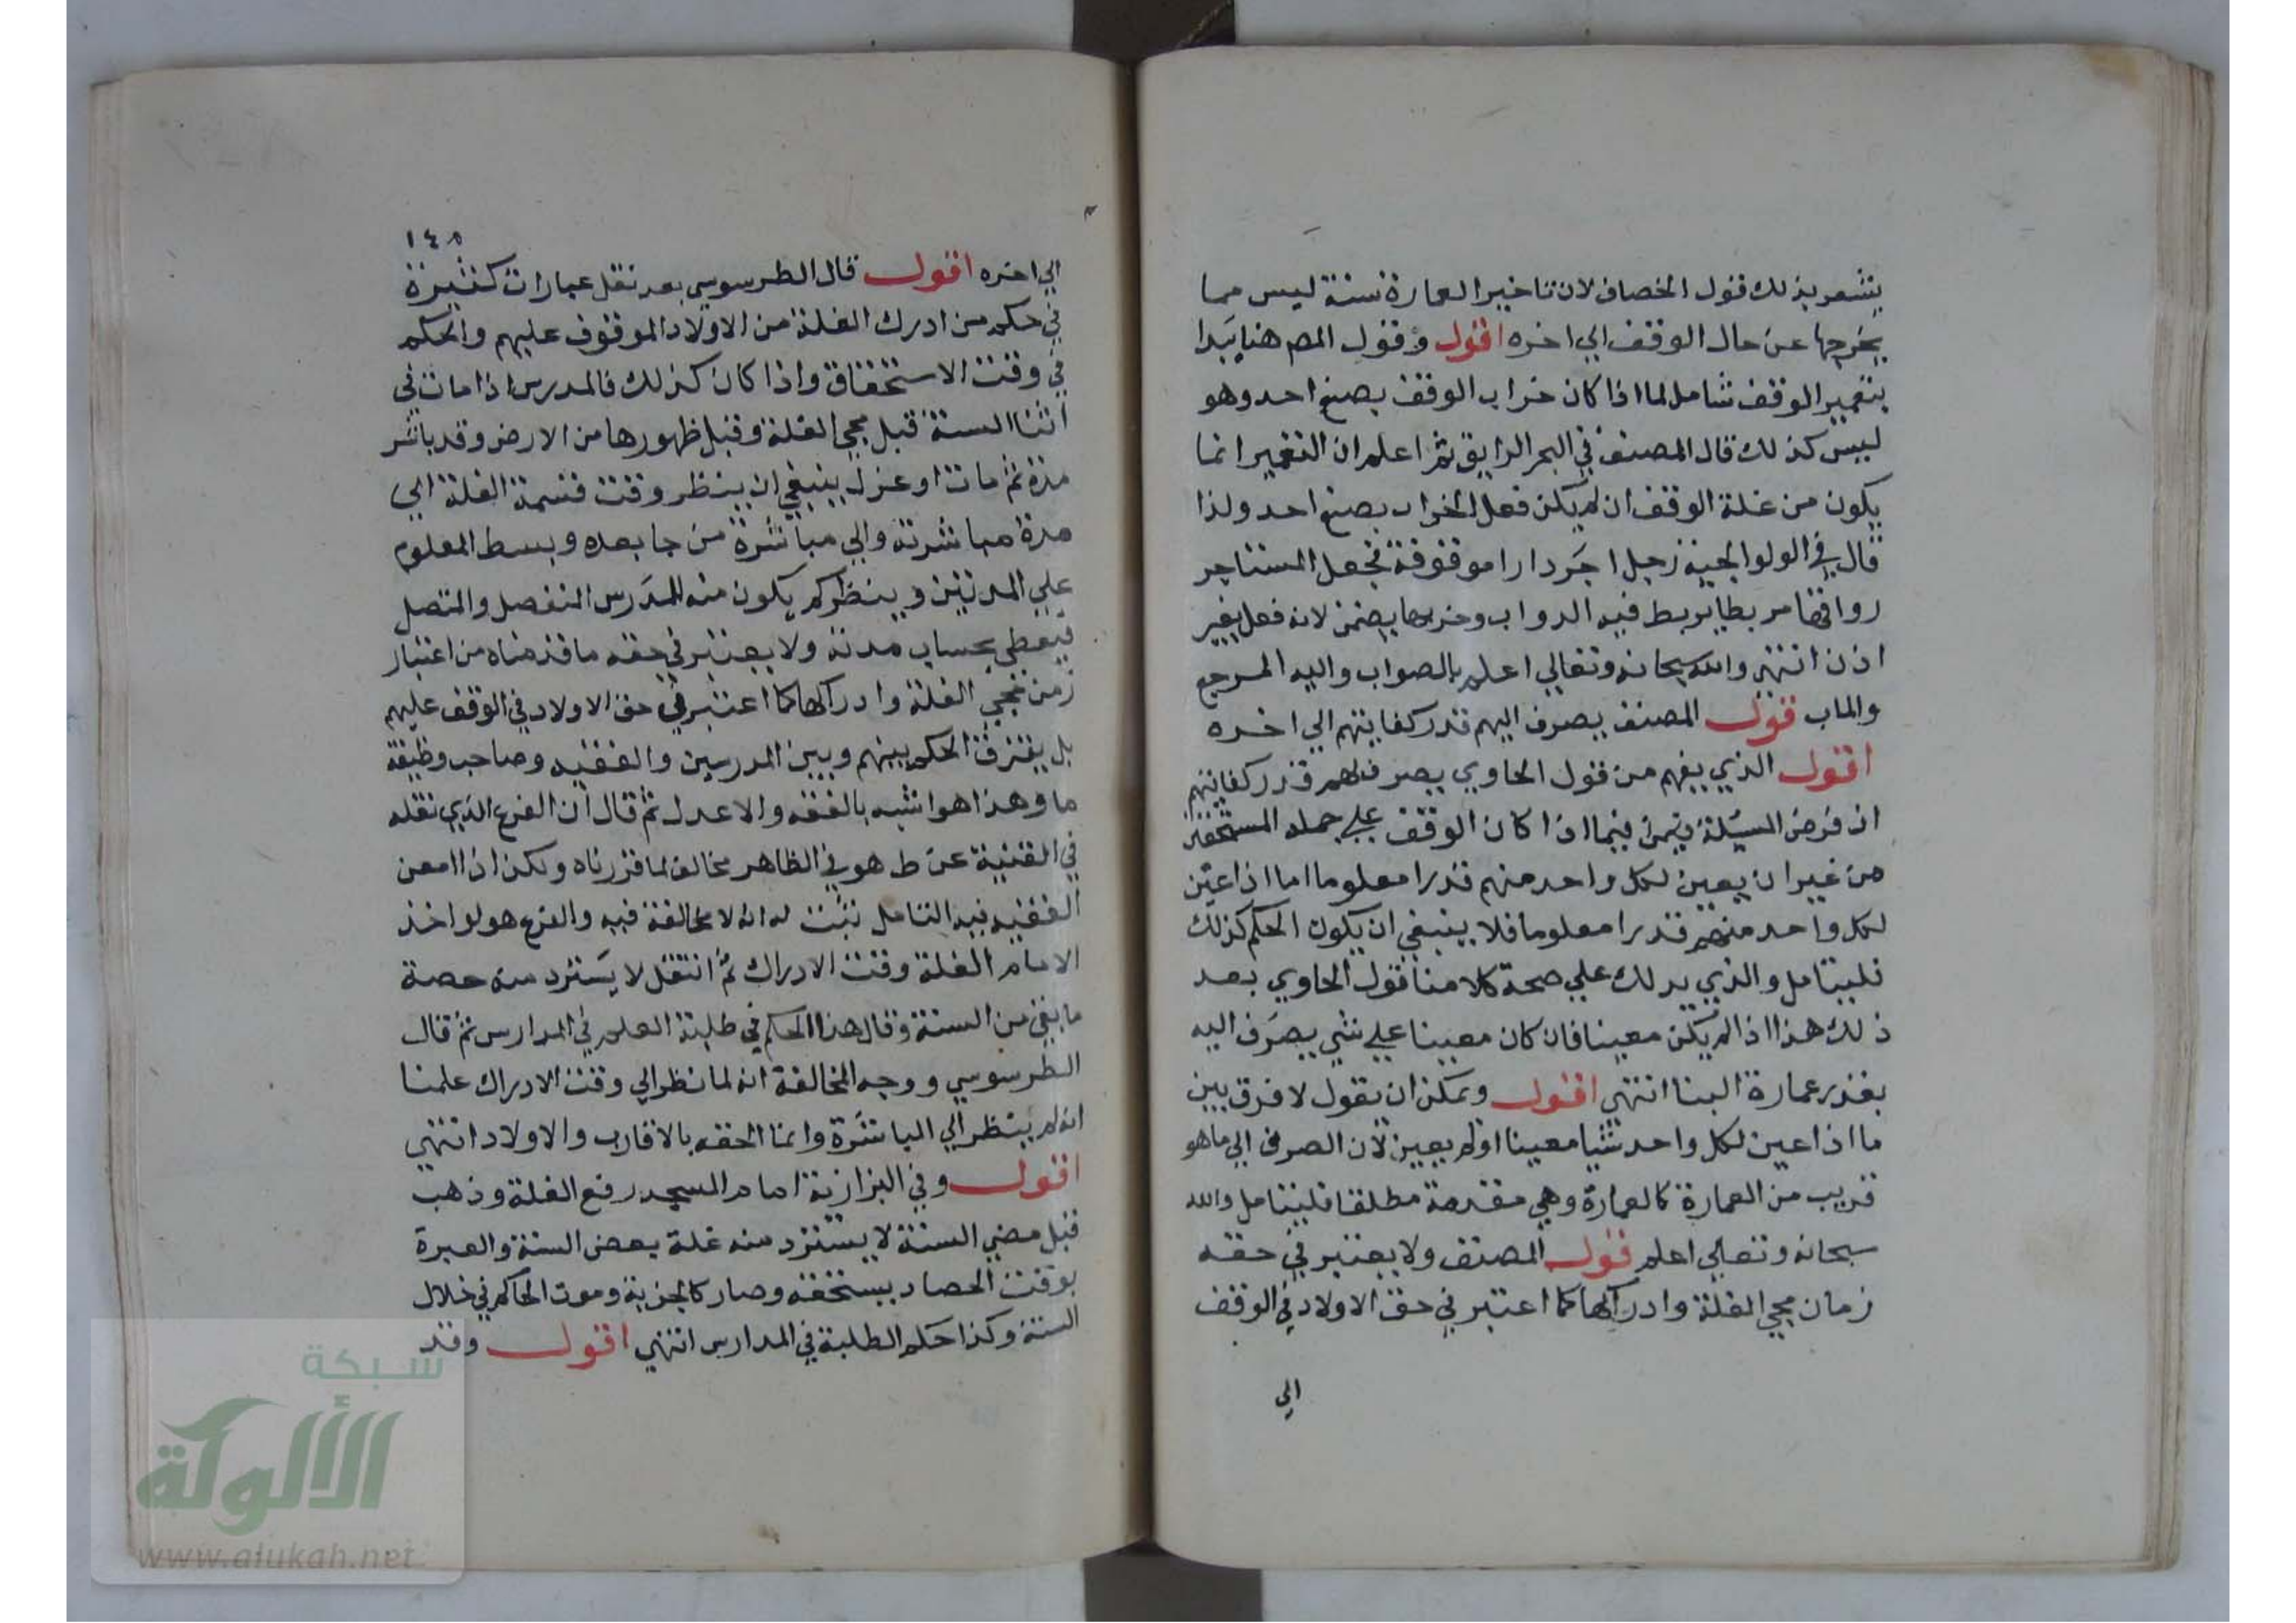 يشعر بذلك قول الخصاف لان تاخير العمارة سنة ليس مما
يخرجها عن حال الوقف الي اخره اقول وقول المص هنا يبدا
بتعمير الوقف شامل لما اذا كان خراب الوقف بصنع احد وهو
ليس كذلك قال المصنف في البحر الرايق ثم اعلم ان التعمير انما
يكون من غلة الوقف ان لم يكن فعل الخراب بصنع احد ولذا
قال في الولوالجية رجل اجر دارا موقوفة فجعل المستاجر
رواقها مربطا يربط فيه الدواب وخربها يضمن لانه فعل بغير
اذن انتهي والله سبحانه وتعالي اعلم بالصواب واليه المرجع
والماب قول المصنف يصرف اليهم قدر كفايتهم الي اخره
اقول الذي يفهم من قول الحاوي يصرف لهم قدر كفايتهم
ان فرض المسئلة فيما اذا كان الوقف علي جملة المستحقين
من غير ان يعين لكل واحد منهم قدرا معلوما اما اذا عين
لكل واحد منهم قدرا معلوما فلا ينبغي ان يكون الحكم كذلك
فليتامل والذي يدلك علي صحة كلامنا قول الحاوي بعد
ذلك هذا اذا لم يكن معينا فان كان معينا علي شي يصرف اليه
بقدر عمارة البنا انتهي اقول ويمكن ان يقول لا فرق بين
ما اذا عين لكل واحد شيا معينا او لم يعين لان الصرف الي ما هو
قريب من العمارة كالعمارة وهي مقدمة مطلقا فليتامل والله
سبحانه وتعالي اعلم قول المصنف ولا يعتبر في حقه
زمان مجي الغلة وادراكها كما اعتبر في حق الاولاد في الوقف
الي
١٤٥
الي اخره اقول قال الطرسوسي بعد نقل عبارات كثيرة
في حكم من ادرك الغلة من الاولاد الموقوف عليهم والحكم
في وقت الاستحقاق واذا كان كذلك فالمدرس اذا مات في
اثنا السنة قبل مجي الغلة وقبل ظهورها من الارض وقد باشر
مدة ثم مات او عزل ينبغي ان ينظر وقت قسمة الغلة الي
مدة مباشرته والي مباشرة من جا بعده وبسط المعلوم
علي المدتين وينظر كم يكون منه للمدرس المنفصل والمتصل
فيعطي بحساب مدته ولا يعتبر في حقه ما قدمناه من اعتبار
زمن مجي الغلة وادراكها كما اعتبر في حق الاولاد في الوقف عليهم
بل يفترق الحكم بينهم وبين المدرسين والفقيه وصاحب وظيفة
ما وهذا هو اشبه بالفقه والاعدل ثم قال ان الفرع الذي نقله
في القنية عن ط هو في الظاهر مخالف لما قررناه ولكن اذا امعن
الفقيه فيه التامل تبت له انه لا مخالفة فيه والفرع هو لو اخذ
الامام الغلة وقت الادراك ثم انتقل لا يسترد منه حصة
ما بقي من السنة وقال هذا الحكم في طلبة العلم في المدارس ثم قال
الطرسوسي ووجه المخالفة انه لما نظر الي وقت الادراك علمنا
انه لم ينظر الي المباشرة وانما الحقه بالاقارب والاولاد انتهي
اقول وفي البزازية امام المسجد رفع الغلة وذهب
قبل مضي السنة لا يسترد منه غلة بعض السنة والعبرة
بوقت الحصاد يستحقه وصار كالجزية وموت الحاكم في خلال
السنة وكذا حكم الطلبة في المدارس انتهي اقول وقد
شبكة
الألوكة
www.alukah.net